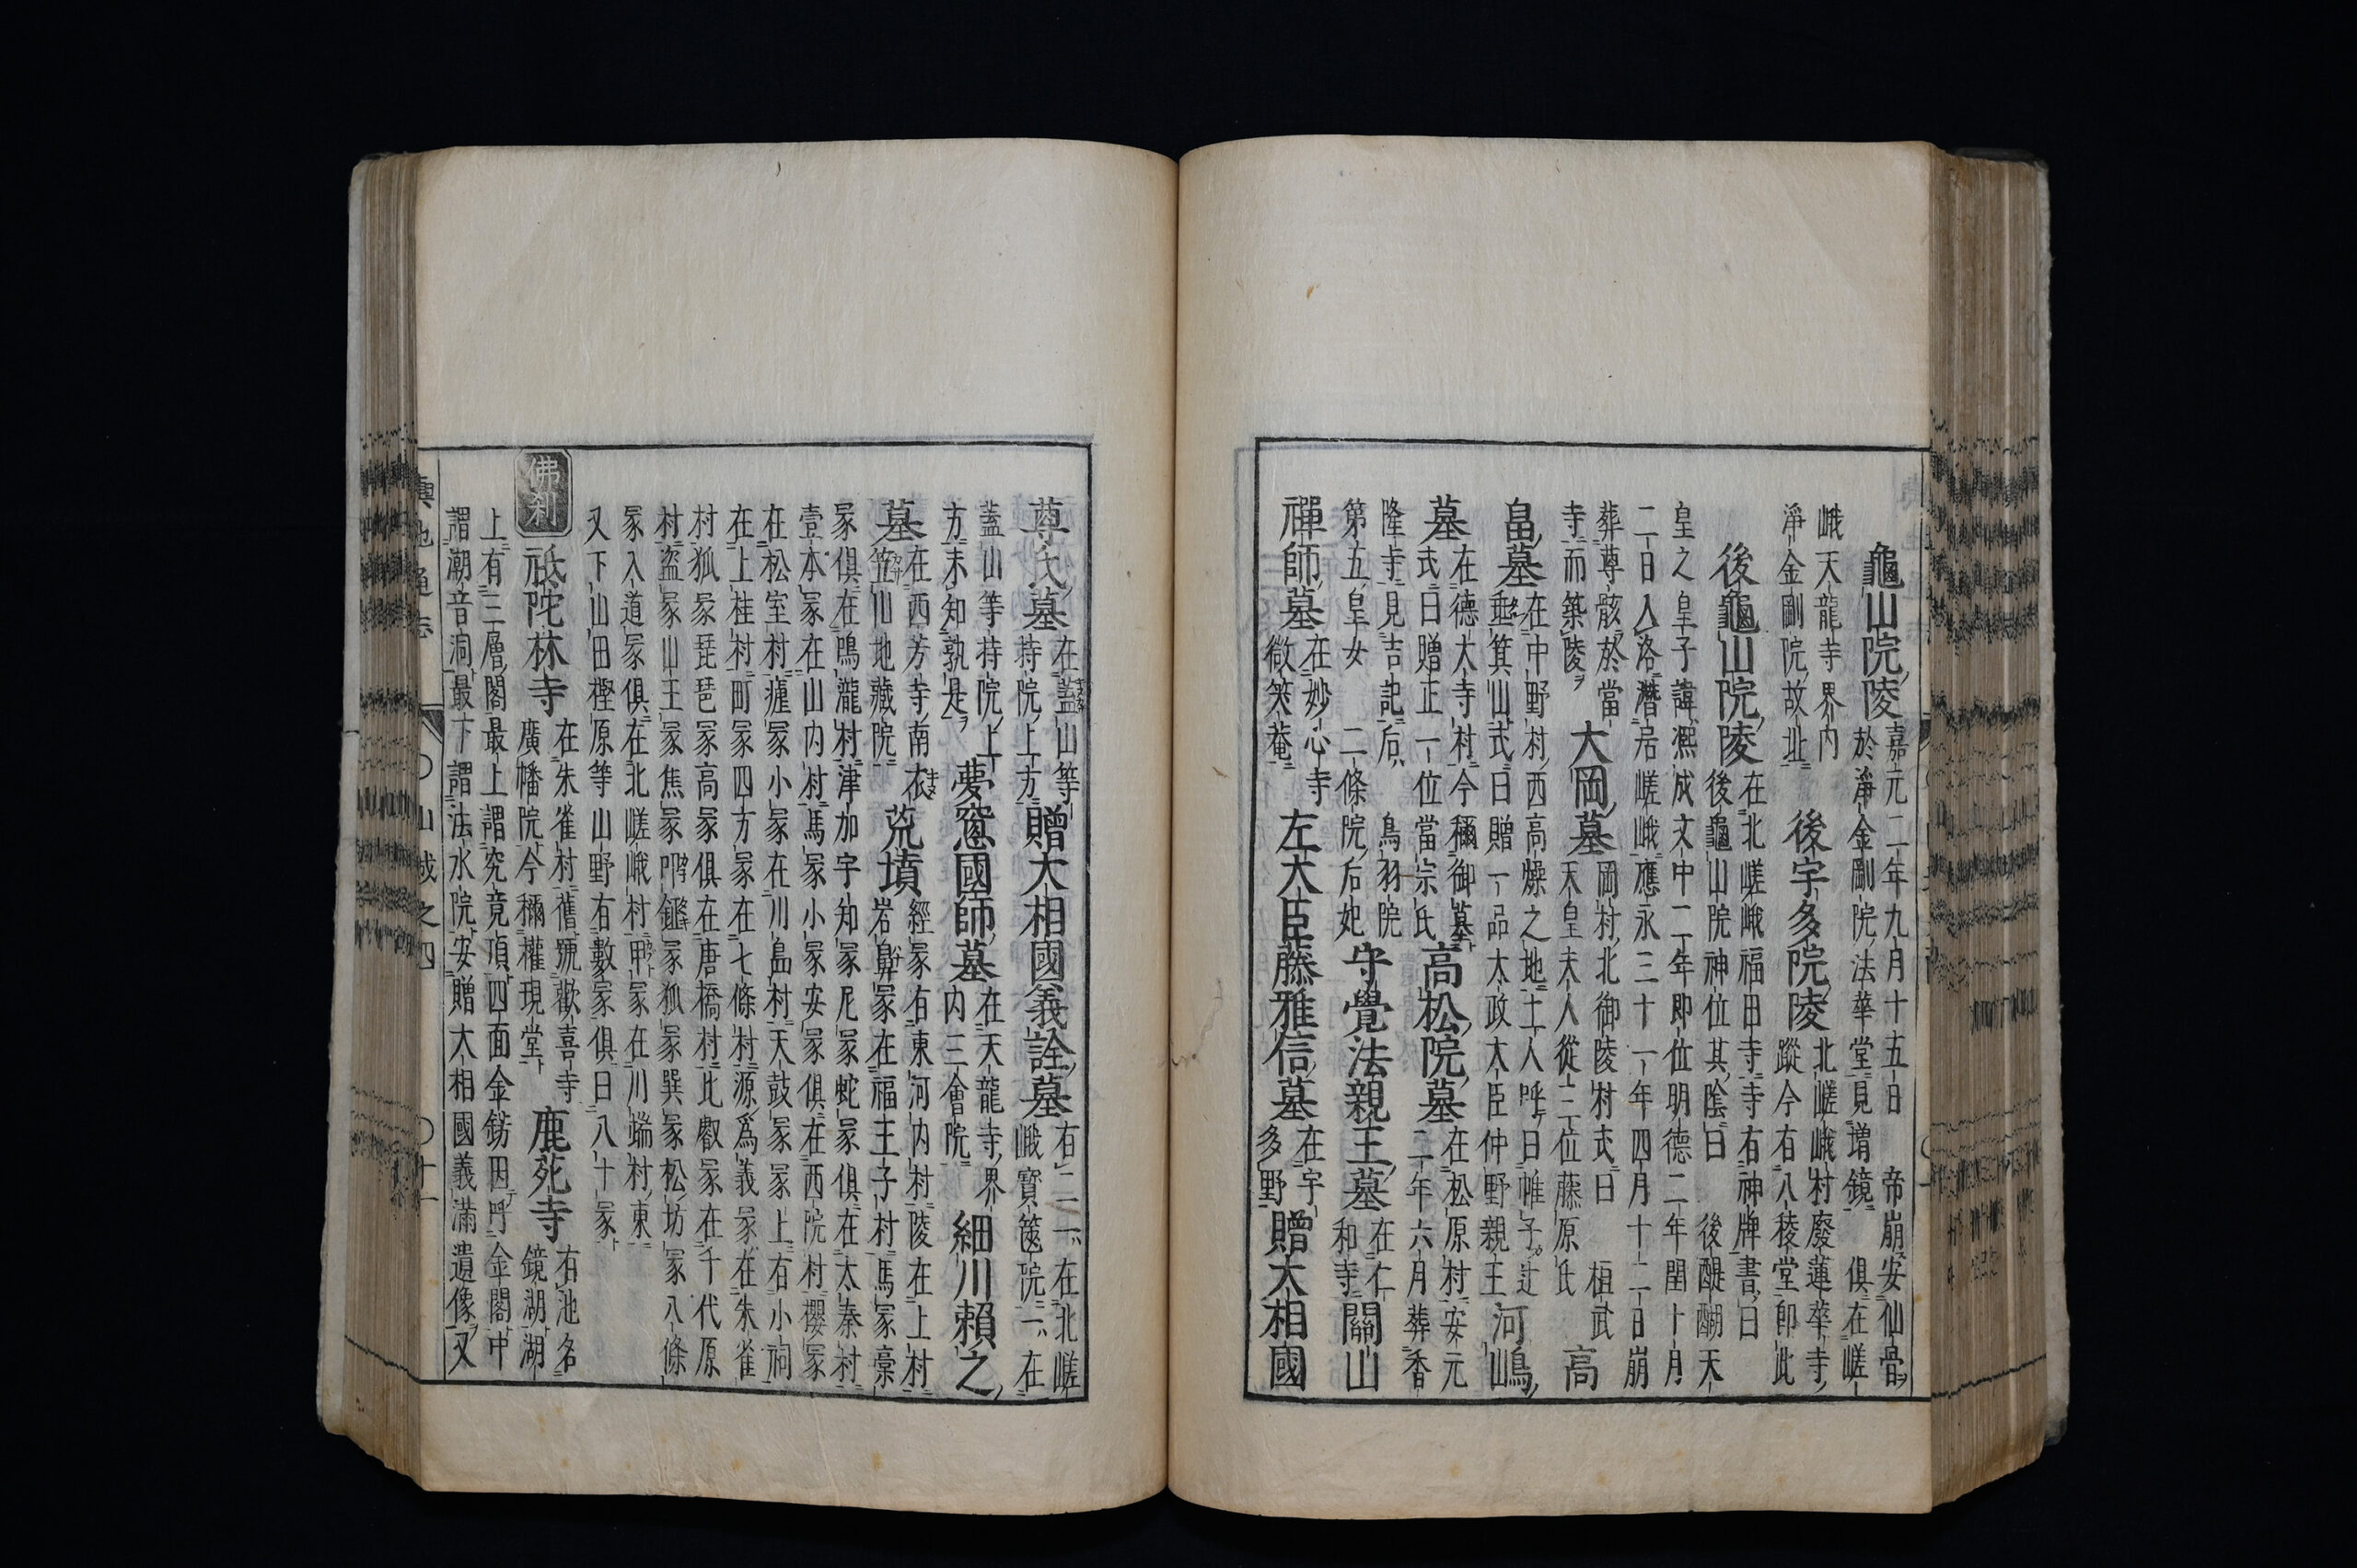 龜山院陵
嘉元二年九月十五日 帝崩安仙骨
於淨金剛院法華堂見増鏡 俱在嵯
峨天龍寺界内
淨金剛院故址
後宇多院陵
北嵯峨村廢蓮華寺
蹤今有八稜堂卽此
後龜山院陵
在北嵯峨福田寺寺有神牌書曰
後龜山院神位其陰曰 後醍醐天
皇之皇子諱凞成文中二年即位明德二年閏十月
二日入洛潛居嵯峨應永三十一年四月十二日崩
葬尊骸於當
寺而築陵
大岡墓
岡村北御陵村式曰 桓武
天皇夫人從三位藤原氏
高
畠墓
在中野村西高燥之地土人呼曰帷子辻
垂箕山式曰贈一品太政大臣仲野親王
河嶋
墓
在德大寺村今稱御墓
式曰贈正一位當宗氏
高松院墓
在松原村安元
二年六月葬香
隆寺見吉記后 鳥羽院
第五皇女 二條院后妃
守覺法親王墓
在仁
和寺
關山
禪師墓
在妙心寺
微笑菴
左大臣藤雅信墓
在宇
多野
贈太相國
尊氏墓
在蓋山等
持院上方
贈大相國義詮墓
右二一在北嵯
峨寶篋院一在
蓋山等持院上
方未知孰是
夢窓國師墓
在天龍寺界
内三會院
細川賴之
墓
在西芳寺南衣
笠山地藏院
荒墳
經冢有東河内村陵在上村
岩鼻冢在福王子村馬冢稾
冢俱在鳴瀧村津加宇知冢尼冢蛇冢俱在太秦村
壹本冢在山内村馬冢小冢安冢俱在西院村櫻冢
在松室村瘧冢小冢在川島村天鼓冢冢上有小祠
在上桂村町冢四方冢在七條村源爲義冢在朱雀
村狐冢琵琶冢高冢俱在唐橋村比叡冢在千代原
村盜冢山王冢焦冢鎧冢狐冢巽冢松坊冢八條
冢入道冢俱在北嵯峨村甲冢在川端村東
又下山田樫原等山野有數冢俱曰八十冢
佛刹
祗陀林寺
在朱雀村舊號歡喜寺
廣幡院今稱權現堂
鹿苑寺
有池名
鏡湖湖
上有三層閣最上謂究竟頂四面金鎊因呼金閣中
謂潮音洞最下謂法水院安贈太相國義滿遺像又
輿地通志 〇山城之四 〇十一